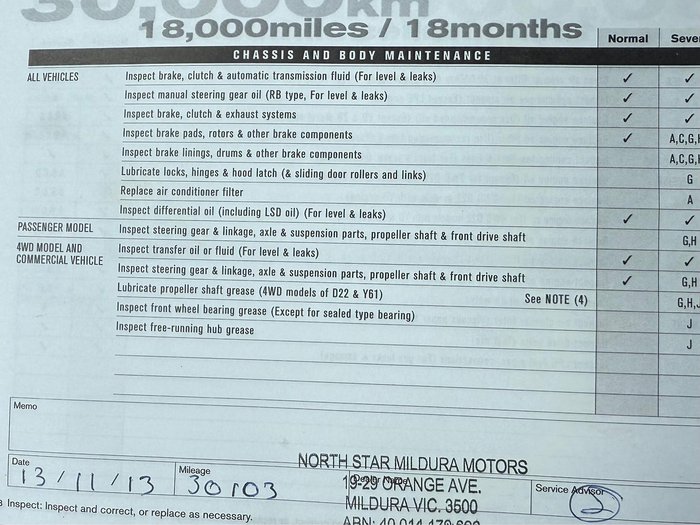 30,000km
18,000miles / 18months
Normal
CHASSIS AND BODY MAINTENANCE
ALL VEHICLES
Inspect brake, clutch & automatic transmission fluid (For level & leaks) ✓ ✓
Inspect manual steering gear oil (RB type, For level & leaks) ✓ ✓
Inspect brake, clutch & exhaust systems ✓ ✓
Inspect brake pads, rotors & other brake components ✓ A,C,G,
Inspect brake linings, drums & other brake components A,C,G,
Lubricate locks, hinges & hood latch (& sliding door rollers and links) G
Replace air conditioner filter A
Inspect differential oil (including LSD oil) (For level & leaks) ✓ ✓
PASSENGER MODEL Inspect steering gear & linkage, axle & suspension parts, propeller shaft & front drive shaft G,H
4WD MODEL AND
COMMERCIAL VEHICLE
Inspect transfer oil or fluid (For level & leaks) ✓ ✓
Inspect steering gear & linkage, axle & suspension parts, propeller shaft & front drive shaft ✓ G,H
Lubricate propeller shaft grease (4WD models of D22 & Y61) See NOTE (4) G,H,
Inspect front wheel bearing grease (Except for sealed type bearing) J
Inspect free-running hub grease J
Memo
Date
13/11/13
Mileage
30103
NORTH STAR MILDURA MOTORS
19-29 ORANGE AVE.
MILDURA VIC. 3500
Service Advisor
Inspect: Inspect and correct, or replace as necessary.